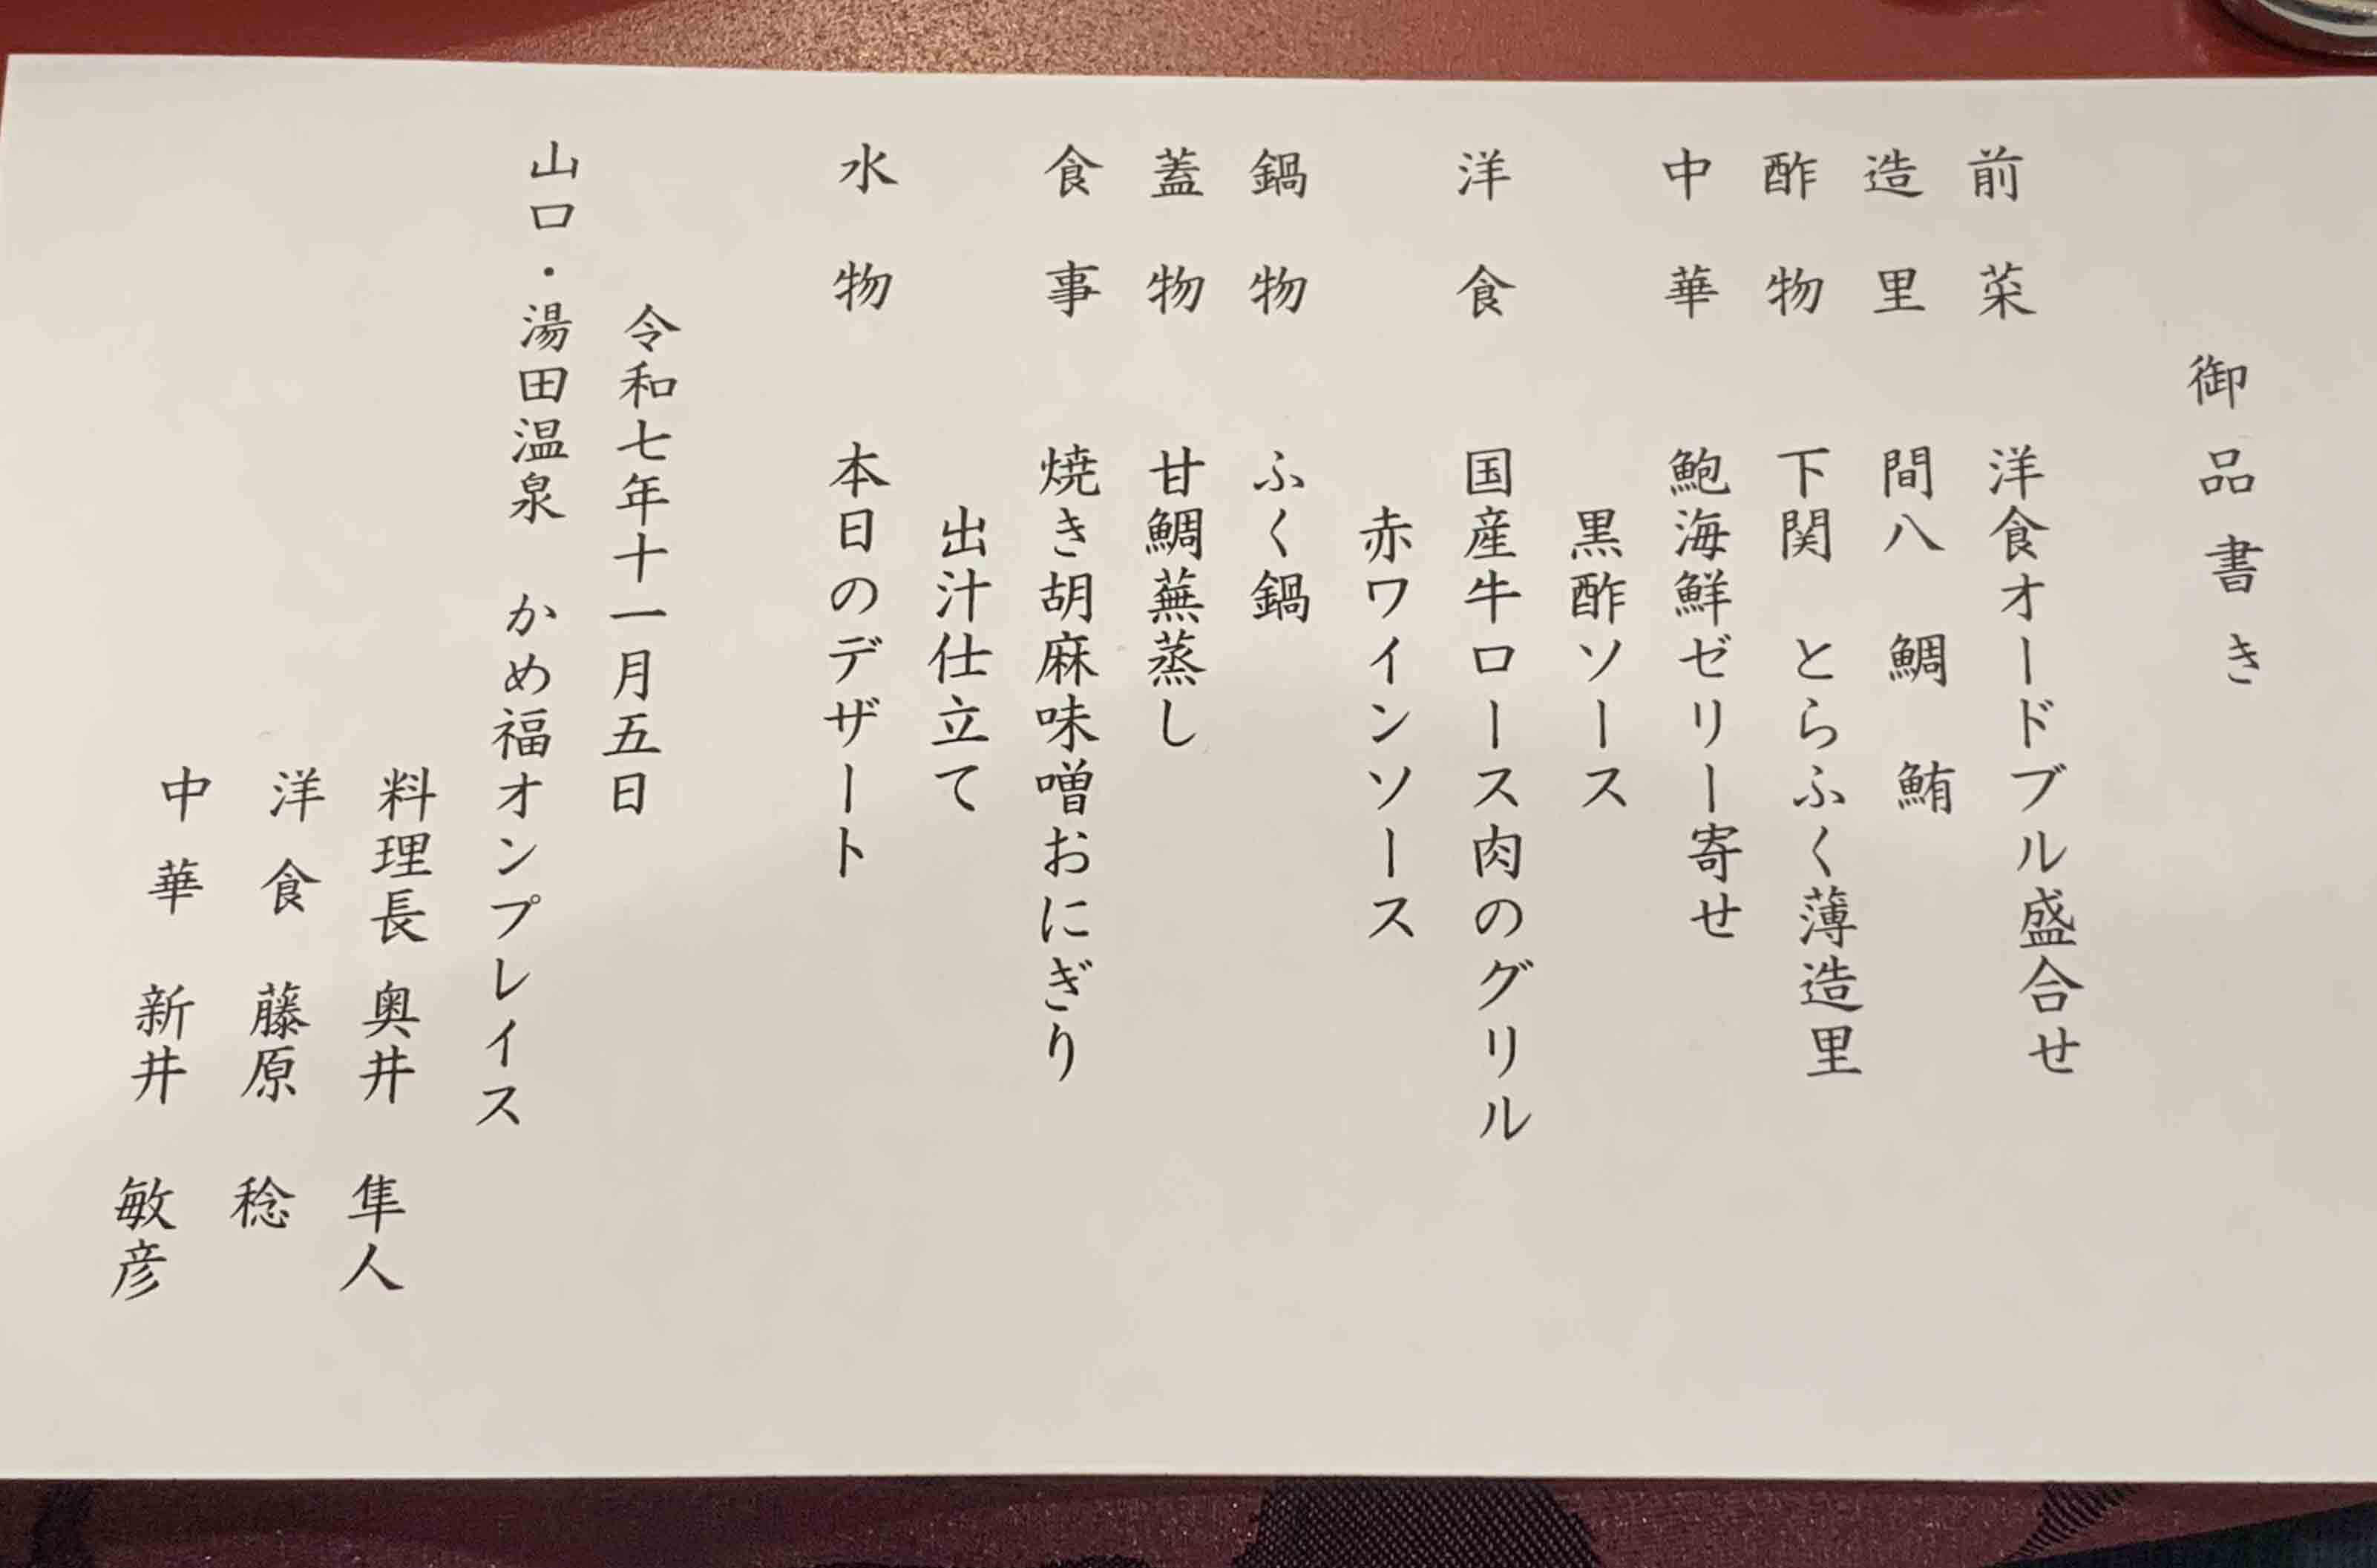 御品書き
前菜　洋食オードブル盛合せ
造里　間八　鯛　鮪
酢物　下関　とらふく薄造里
中華　鮑海鮮ゼリー寄せ
黒酢ソース
洋食　国産牛ロース肉のグリル
赤ワインソース
鍋物　ふく鍋
蓋物　甘鯛蕪蒸し
食事　焼き胡麻味噌おにぎり
出汁仕立て
水物　本日のデザート
令和七年十一月五日
山口・湯田温泉　かめ福オンプレイス
料理長　奥井　隼人
洋食　藤原　稔
中華　新井　敏彦